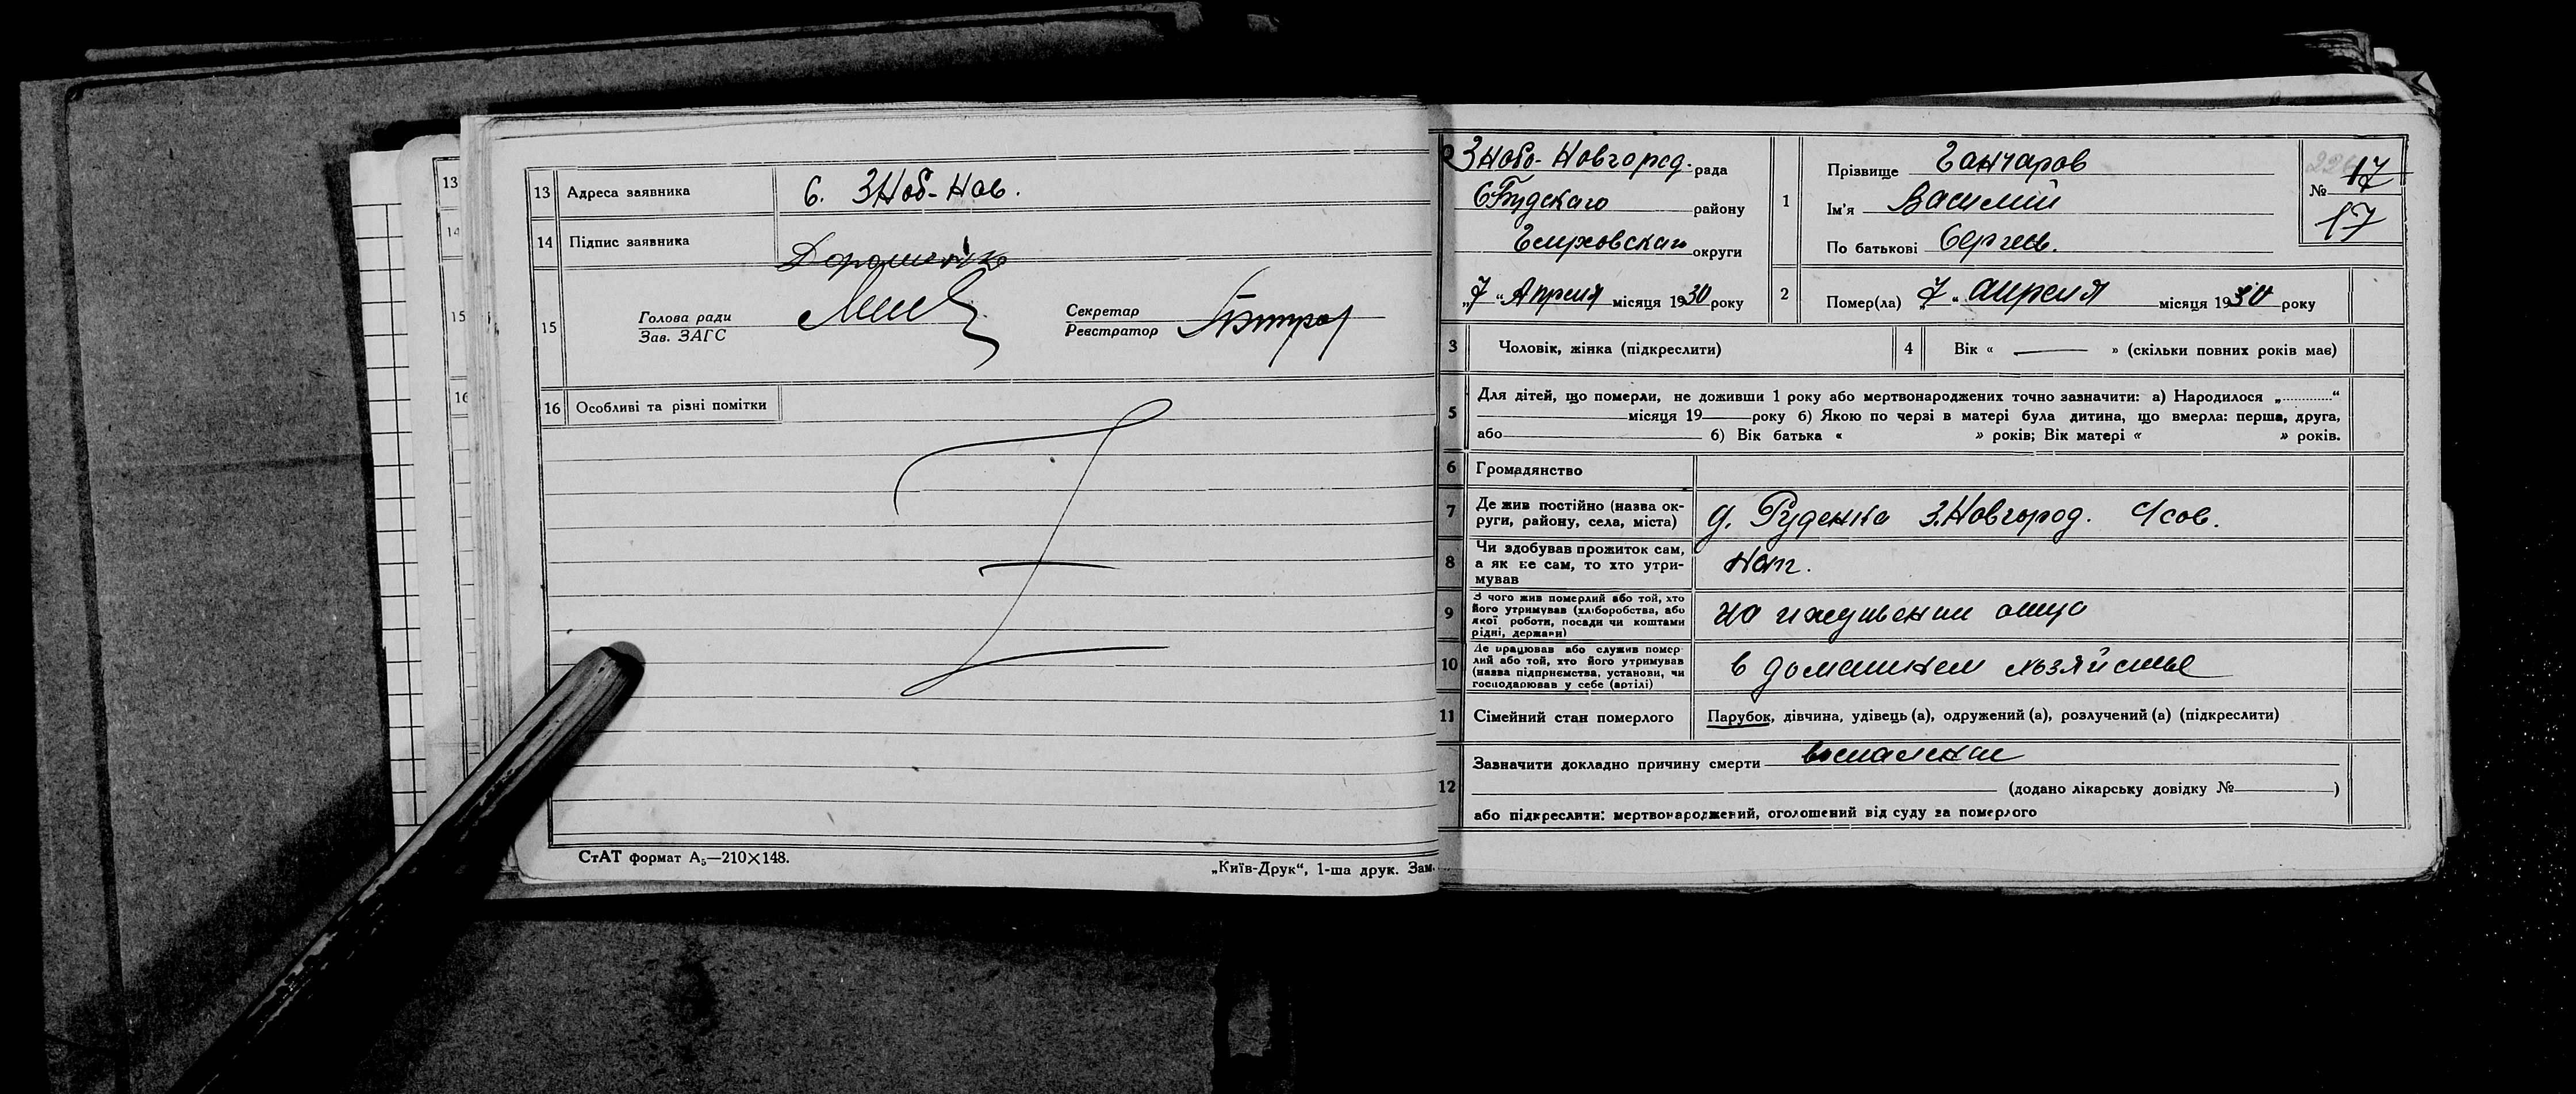 13 Адреса заявника С. ЗНоб-Нов.
14 Підпис заявника
15 Голова ради
Зав. ЗАГС
Секретар
Реєстратор
16 Особливі та різні помітки
СтАТ формат А₅—210×148.
„Київ-Друк“, 1-ша друк. Зам.
ЗНобо-Новгород. рада
СБудскаго району
Глуховскаго округи
„7“ Апреля місяця 1930 року
1 Прізвище Ганчаров
Ім'я Василий
По батькові Сергеев.
№ 17
17
2 Помер(ла) „7“ апреля місяця 1930 року
3 Чоловік, жінка (підкреслити)
4 Вік « — » (скільки повних років має)
5 Для дітей, що померли, не доживши 1 року або мертвонароджених точно зазначити: а) Народилося „............“
місяця 19 року б) Якою по черзі в матері була дитина, що вмерла: перша, друга,
або б) Вік батька « » років; Вік матері « » років.
6 Громадянство
7 Де жив постійно (назва ок-
руги, району, села, міста) д. Руденка З.Новгород. Ч/сов.
8 Чи здобував прожиток сам,
а як не сам, то хто утри-
мував
9 З чого жив померлий або той, хто
його утримував (хліборобства, або
якої роботи, посади чи коштами
рідні, держави) на иждивении отца
10 Де працював або служив помер-
лий або той, хто його утримував
(назва підприємства, установи, чи
господарював у себе (артілі) в домашнем хозяйстве
11 Сімейний стан померлого Парубок, дівчина, удівець (а), одружений (а), розлучений (а) (підкреслити)
12 Зазначити докладно причину смерти воспаление
(додано лікарську довідку № )
або підкреслити: мертвонароджений, оголошений від суду за померлого
13
14
15
16